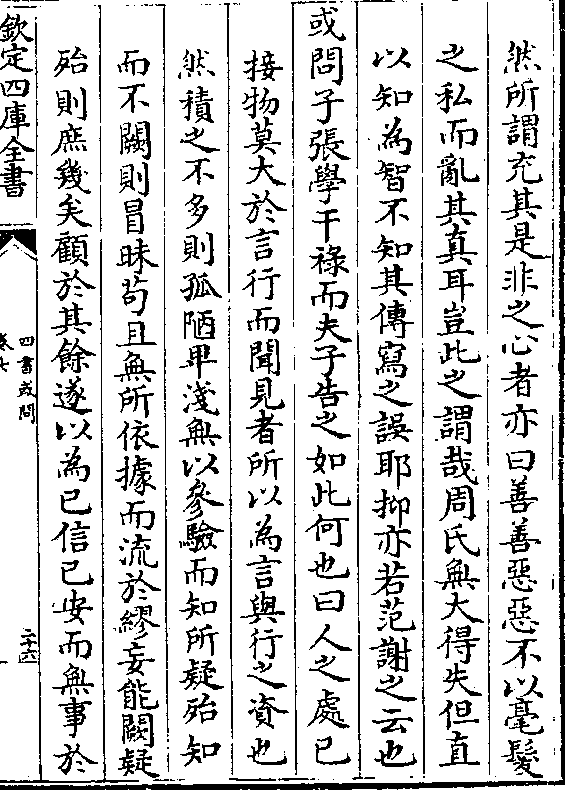 然所謂充其是非之心者亦曰善善惡惡不以毫髮
之私而亂其真耳豈此之謂哉周氏無大得失但直
以知為智不知其傳寫之誤耶抑亦若范謝之云也
或問子張學干祿而夫子告之如此何也曰人之處己
接物莫大於言行而聞見者所以為言與行之資也
然積之不多則孤陋卑淺無以參驗而知所疑殆知
而不闕則冒昧苟且無所依據而流於繆妄能闕疑
殆則庶幾矣顧於其餘遂以為已信已安而無事於
欽定四庫全書
四書或問
卷七
二十六